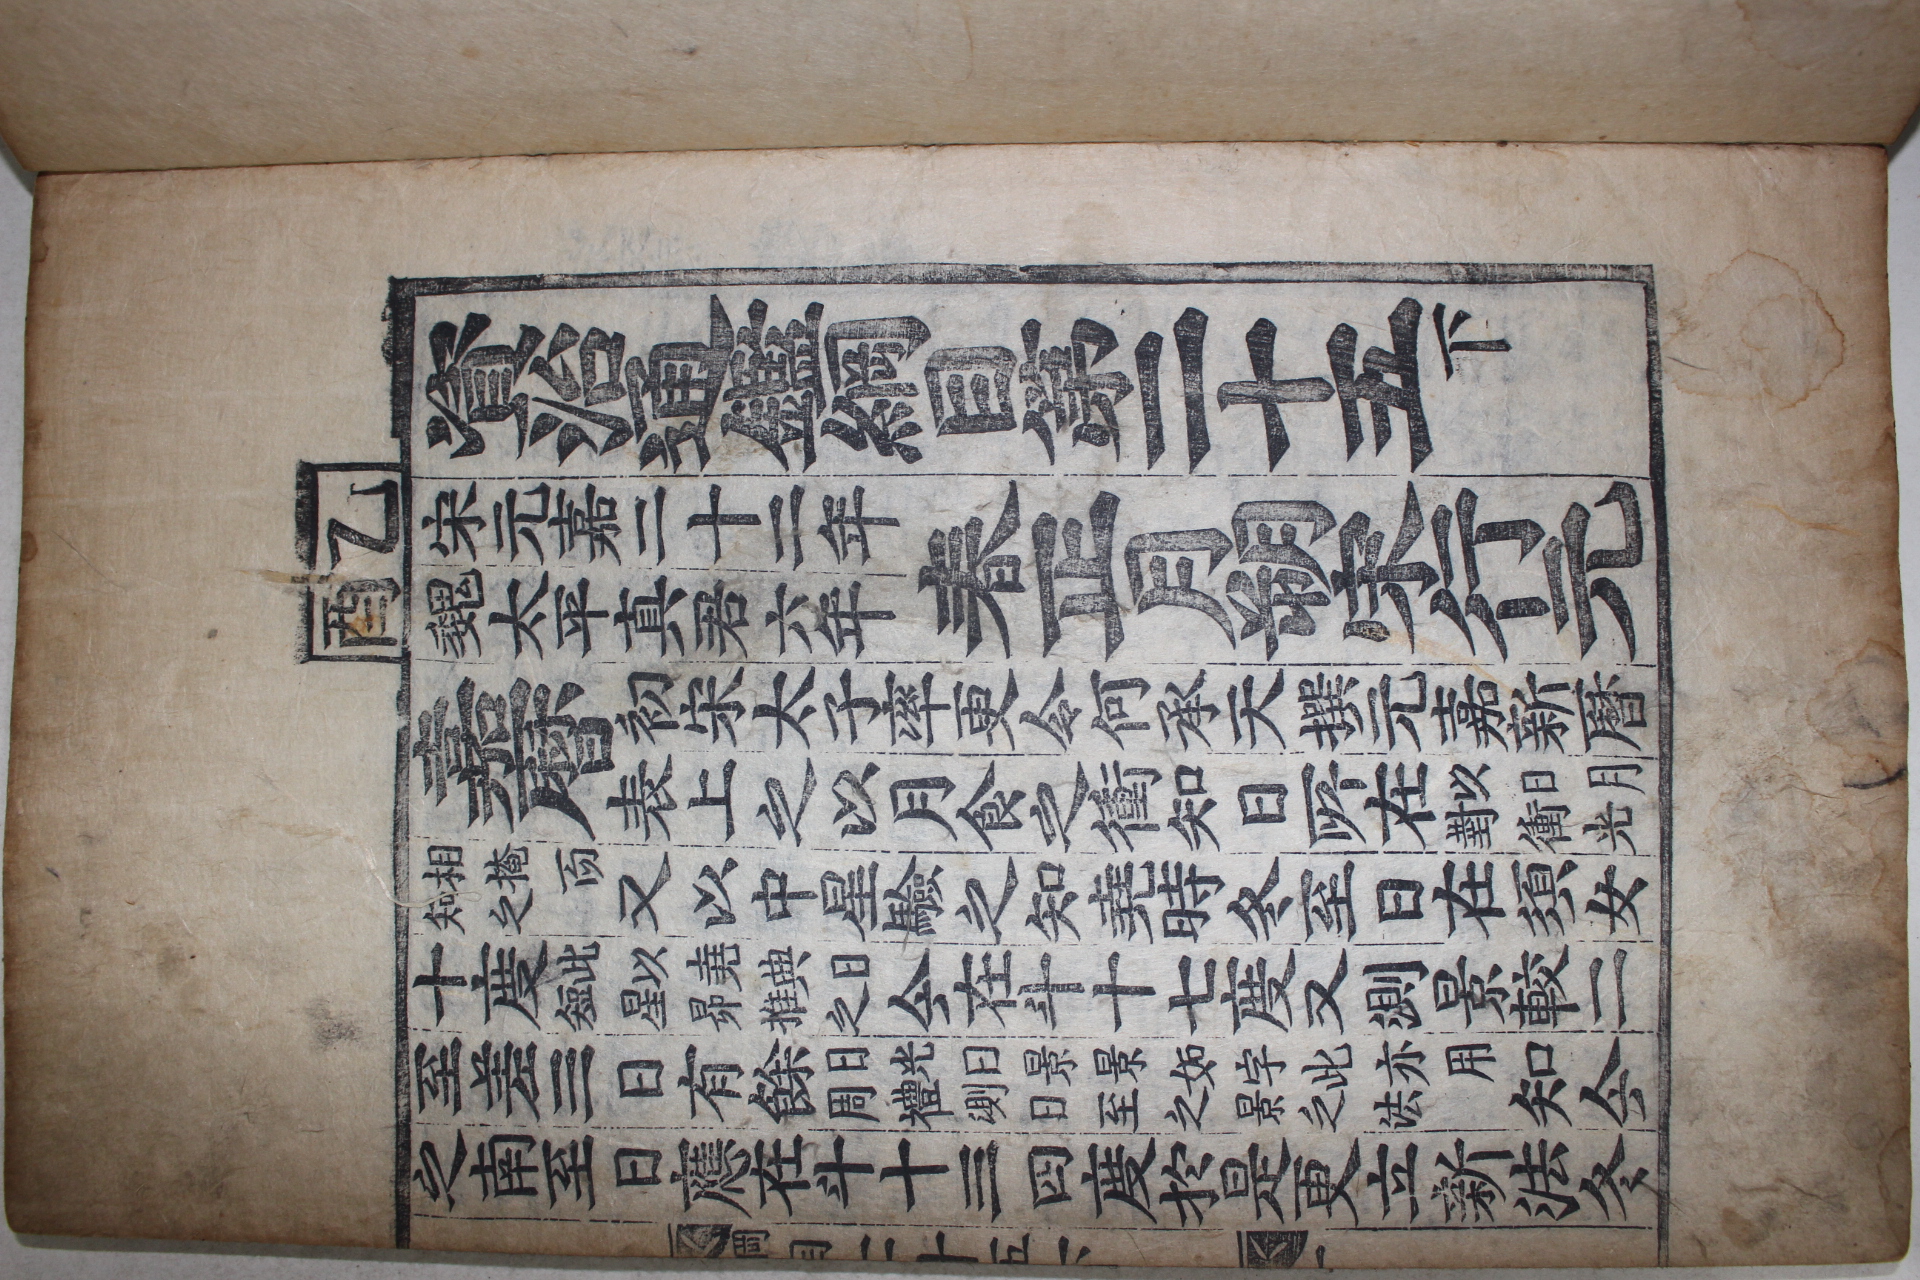 乙酉
資治通鑑綱目第二十五下
宋元嘉二十二年
魏太平真君六年
春正月朔宋行元
嘉曆
初宋太子率更令何承天撰元嘉新曆
表上之以月食之衝知日所在
以日月
對衝光
相掩而
知之
又以中星驗之知堯時冬至日在須女
十度
此以堯典日
短星昴推之
今在斗十七度又測景較二
至差三日有餘
日光曰景景如字此亦用
周禮測日至之景之法
知今
之南至日應在斗十三四度於是更立新法冬
綱目二十五下